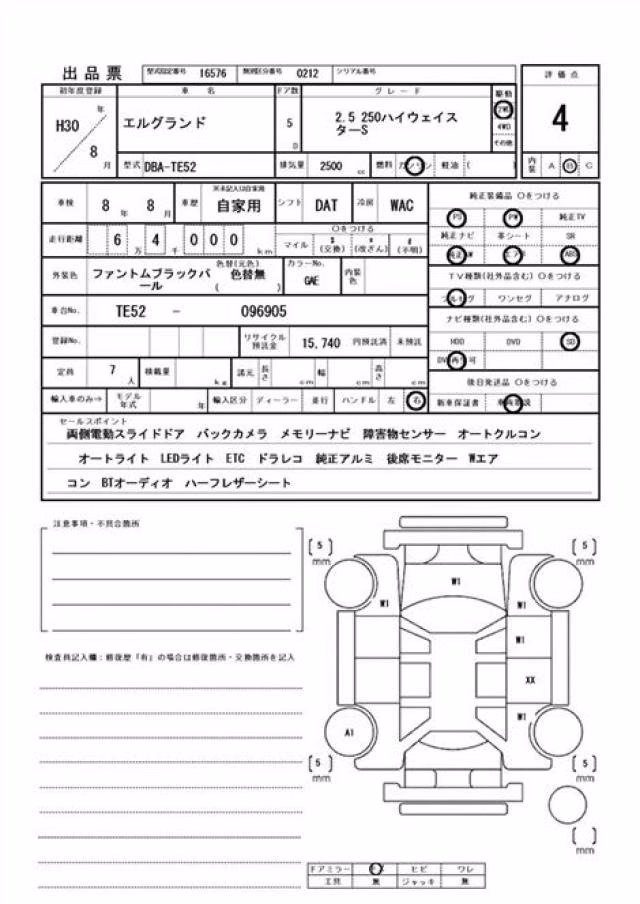 出品票 型式指定番号 16576 類別区分番号 0212 シリアル番号
評価点
初年度登録 車名 ドア数 グレード 駆動
H30 年 8 月
エルグランド
5 D
2.5 250ハイウェイスターS
2WD
4WD
その他
4
型式 DBA-TE52 排気量 2500 cc 燃料 ガソリン 軽油 ( ) 内装 A B C
車検 8 年 8 月 車歴 ※未記入は自家用 自家用 シフト DAT 冷房 WAC
純正装備品 〇をつける
PS PW 純正TV
純正ナビ 革シート SR
純正AW エアB ABS
走行距離 6 万 4 千 0 0 0 km 〇をつける
マイル $ (交換) * (改ざん) # (不明)
外装色 ファントムブラックパール 色替(元色) 色替無 ( ) カラーNo. GAE 内装色
TV種類(社外品含む) 〇をつける
フルセグ ワンセグ アナログ
車台No. TE52 - 096905
ナビ種類(社外品含む) 〇をつける
HDD DVD SD
DVD再生可
登録No. リサイクル預託金 15,740 円預託済 未預託
定員 7 人 積載量 kg 諸元 長さ cm 幅 cm 高さ cm
後日発送品 〇をつける
新車保証書 車両取説
輸入車のみ⇒ モデル年式 年 輸入区分 ディーラー 並行 ハンドル 左 右
セールスポイント
両側電動スライドドア バックカメラ メモリーナビ 障害物センサー オートクルコン
オートライト LEDライト ETC ドラレコ 純正アルミ 後席モニター Wエア
コン BTオーディオ ハーフレザーシート
注意事項・不具合箇所
検査員記入欄:修復歴「有」の場合は修復箇所・交換箇所を記入
[5] mm
[5] mm
W1
W1
W1
W1
XX
W1
A1
[5] mm
[5] mm
[ ] mm
ドアミラー キズ ヒビ ワレ
工具 無 ジャッキ 無